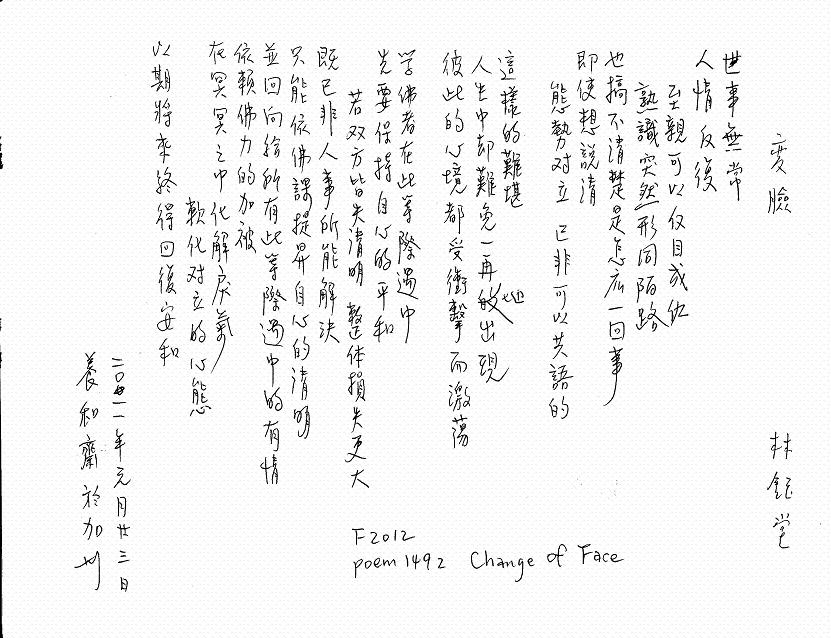 變臉
林鈺堂
世事無常
人情反復
至親可以反目成仇
熟識突然形同陌路
也搞不清楚是怎庅一回事
即使想說清
態勢对立 已非可以共語的
這樣的難堪
人生中却難免一再地出現
彼此的心境都受衝擊而激蕩
学佛者在此等際遇中
先要保持自心的平和
若双方皆失清明 整体損失更大
既已非人事所能解決
只能依佛課提昇自心的清明
並回向給所有此等際遇中的有情
依賴佛力的加被
在冥冥之中化解戾氣
軟化对立的心態
以期將來終得回復安和
二〇一一年元月廿三日
養和齋於加州
F2012
poem 1492 Change of Face